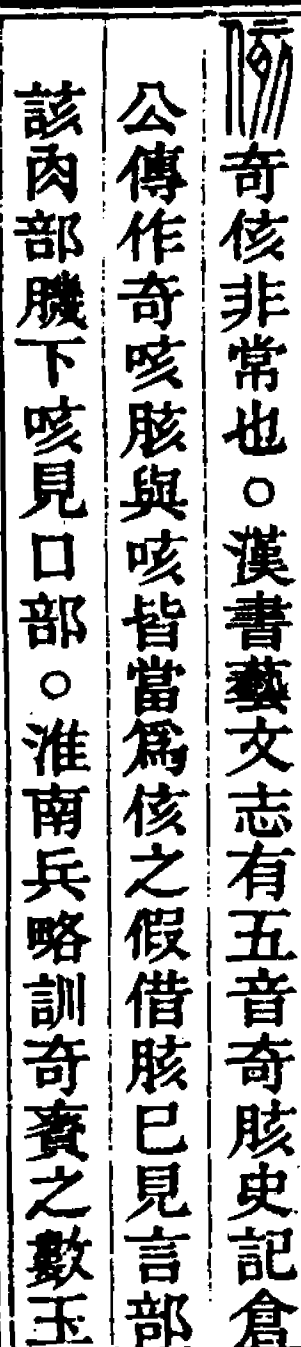 侅奇侅非常也○漢書藝文志有五音奇胲史記倉
公傳作奇咳胲與咳皆當爲侅之假借胲已見言部
該肉部膎下咳見口部○淮南兵略訓奇賌之數玉